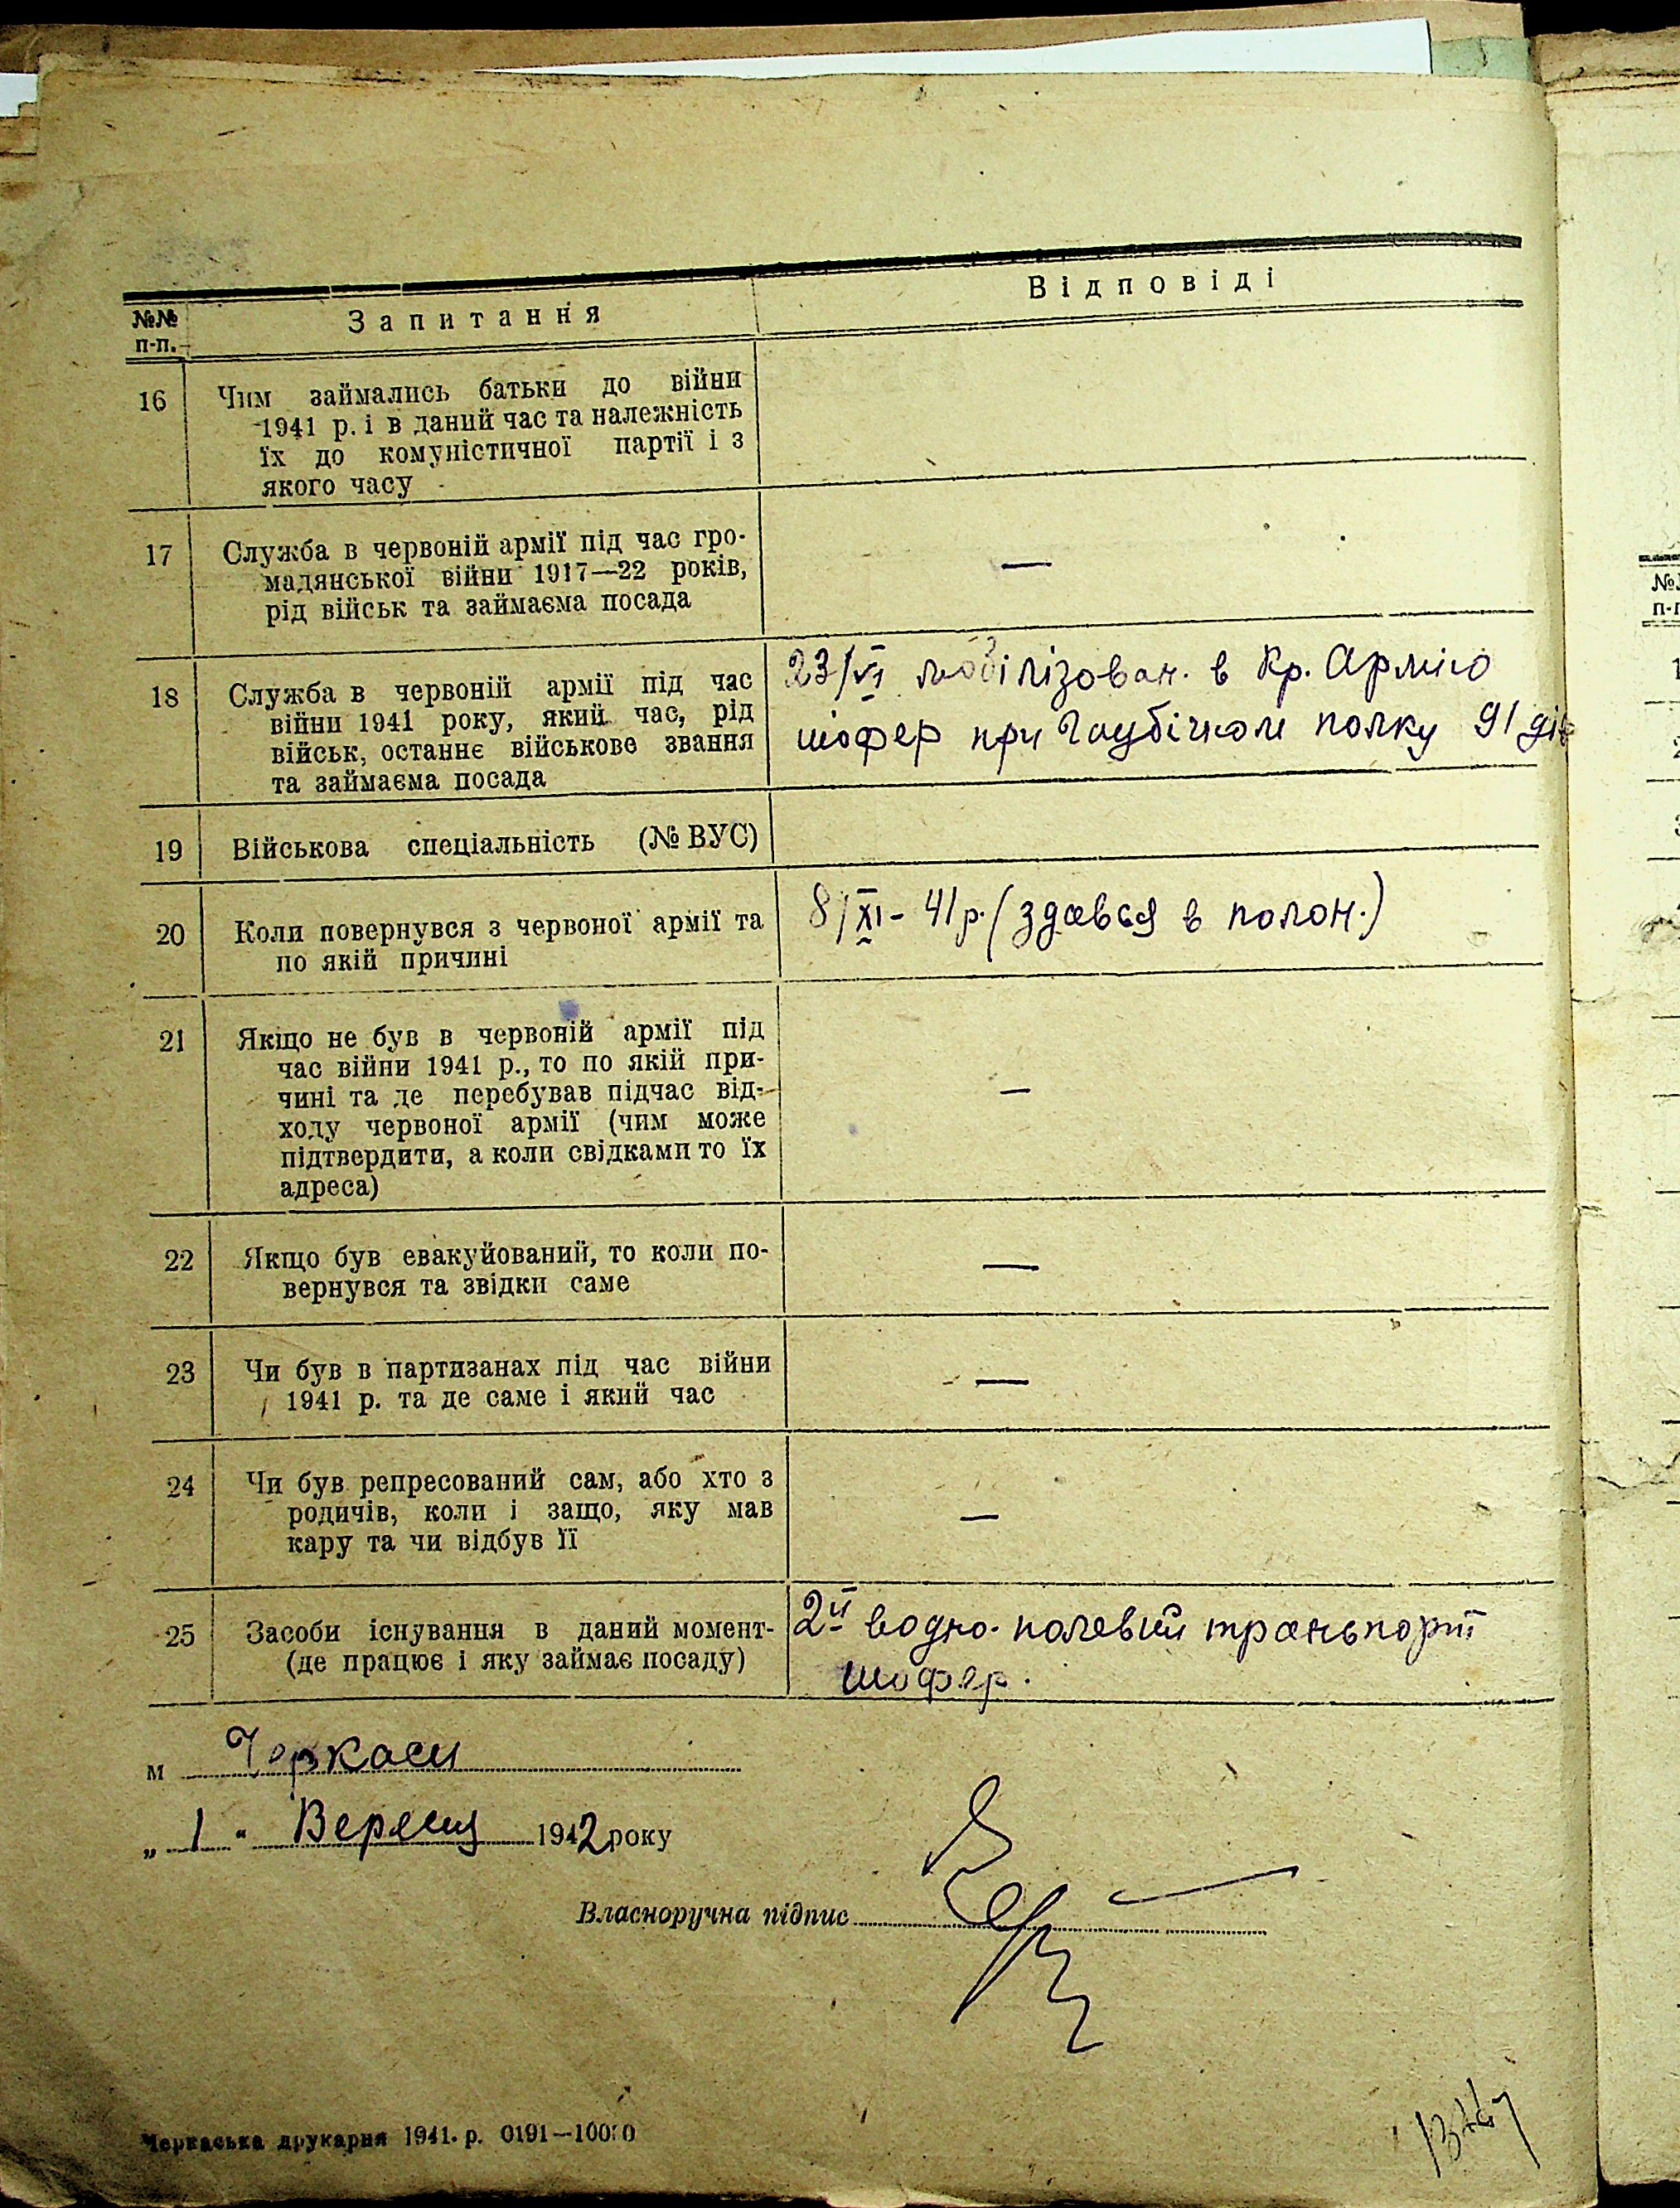 №№ п-п.
Запитання
Відповіді
16
Чим займались батьки до війни
1941 р. і в даний час та належність
їх до комуністичної партії і з
якого часу
17
Служба в червоній армії під час гро-
мадянської війни 1917—22 років,
рід військ та займаєма посада
—
18
Служба в червоній армії під час
війни 1941 року, який час, рід
військ, останнє військове звання
та займаєма посада
23/VI мобілізован. в Кр. Армію
шофер при Гаубічном полку 91 дів
19
Військова спеціальність (№ ВУС)
20
Коли повернувся з червоної армії та
по якій причині
8/XI - 41 р. (здався в полон.)
21
Якщо не був в червоній армії під
час війни 1941 р., то по якій при-
чині та де перебував підчас від-
ходу червоної армії (чим може
підтвердити, а коли свідками то їх
адреса)
—
22
Якщо був евакуйований, то коли по-
вернувся та звідки саме
—
23
Чи був в партизанах під час війни
1941 р. та де саме і який час
—
24
Чи був репресований сам, або хто з
родичів, коли і защо, яку мав
кару та чи відбув її
—
25
Засоби існування в даний момент-
(де працює і яку займає посаду)
2й водно-полевий траньпорт
шофер.
м Черкаси
„ 1 " 1942 року
Власноручна підпис
Черкаська друкарня 1941. р. 0191—10000
№
п-п